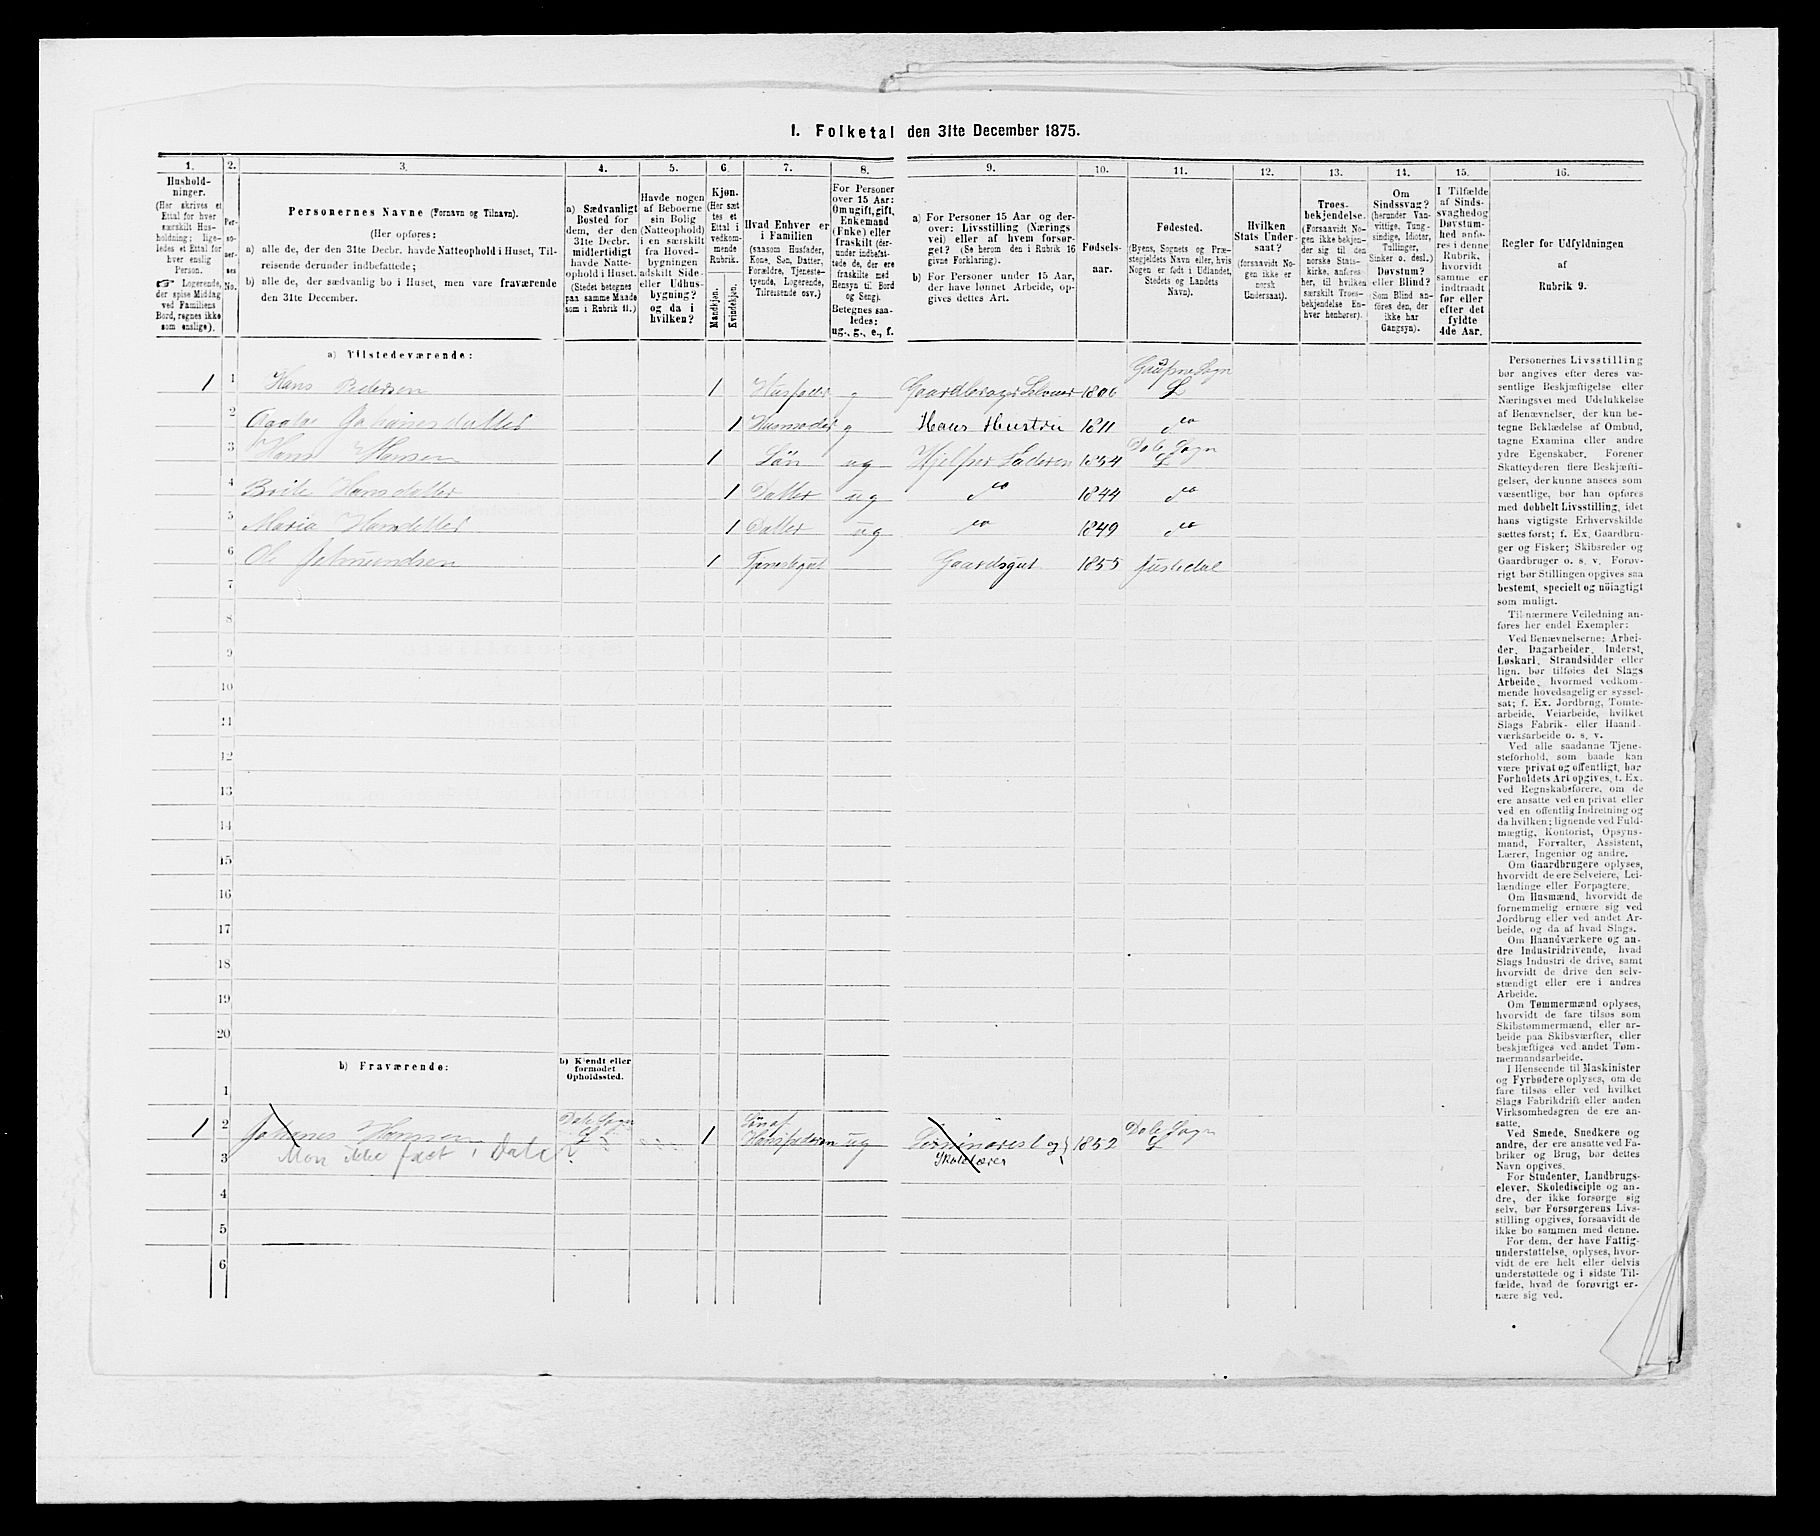 I. Folketal den 31te December 1875.
1. 2. 3. 4. 5. 6. 7. 8. 9. 10. 11. 12. 13. 14. 15. 16.
Hushold-
ninger.
(Her skrives et
Ettal for hver
særskilt Hus-
holdning; lige-
ledes et Ettal for
hver enslig
Person.
☞ Logerende,
der spise Middag
ved Familiens
Bord, regnes ikke
som enslige).
Per-
so-
ner-
nes
No.
Personernes Navne (Fornavn og Tilnavn).
(Her opføres:
a) alle de, der den 31te Decbr. havde Natteophold i Huset, Til-
reisende derunder indbefattede;
b) alle de, der sædvanlig bo i Huset, men vare fraværende
den 31te December.
a) Sædvanligt
Bosted for
dem, der den
31te Decbr.
midlertidigt
havde Natte-
ophold i Huset.
(Stedet betegnes
paa samme Maade
som i Rubrik 11.)
Havde nogen
af Beboerne
sin Bolig
(Natteophold)
i en særskilt
fra Hoved-
bygningen
adskilt Side-
eller Udhus-
bygning?
og da i
hvilken?
Kjøn.
(Her sæt-
tes et
Ettal i
vedkom-
mende
Rubrik.
Mandkjøn.
Kvindekjøn.
Hvad Enhver er
i Familien
(saasom Husfader,
Kone, Søn, Datter,
Forældre, Tjeneste-
tyende, Logerende,
Tilreisende osv.)
For Personer
over 15 Aar:
Om ugift, gift,
Enkemand
(Enke) eller
fraskilt (der-
under indbefat-
tede de, der ere
fraskilte med
Hensyn til Bord
og Seng).
Betegnes saa-
ledes:
ug., g., e., f.
a) For Personer 15 Aar og der-
over: Livsstilling (Nærings
vei) eller af hvem forsør-
get? (Se herom den i Rubrik 16
givne Forklaring).
b) For Personer under 15 Aar,
der have lønnet Arbeide, op-
gives dettes Art.
Fødsels-
aar.
Fødested.
(Byens, Sognets og Præ-
stegjeldets Navn eller, hvis
Nogen er født i Udlandet,
Stedets og Landets
Navn).
Hvilken
Stats Under-
saat?
(forsaavidt No-
gen ikke er
norsk
Undersaat).
Troes-
bekjendelse.
(Forsaavidt No-
gen ikke bekjen-
der sig til den
norske Stats-
kirke, anføres
her, til hvilken
særskilt Troes-
bekjendelse En-
hver henhører).
Om
Sindssvag?
(herunder Van-
vittige, Tung-
sindige, Idioter,
Tullinger,
Sinker o. desl.)
Døvstum?
eller Blind?
(Som Blind an-
føres den, der
ikke har
Gangsyn).
I Tilfælde
af Sinds-
svaghed og
Døvstum-
hed anfø-
res i denne
Rubrik,
hvorvidt
samme er
indtraadt
før eller
efter det
fyldte
4de Aar.
Regler for Udfyldningen
af
Rubrik 9.
a) Tilstedeværende:
1 1 Hans Pedersen 1 Husfader g Gaardbruger Selveier 1806 Gaupne Sogn L
2 Johanesdatter 1 Husmoder g Hans Hustru 1811 do
3 Hans Hansen 1 Søn ug Hjelper Faderen 1854 Dale Sogn L
4 Brite Hansdatter 1 Datter ug do 1844 do
5 Maria Hansdatter 1 Datter ug do 1849 do
6 Ole 1 Tjenestegut Gaardsgut 1855 Justedal
7
8
9
10
11
12
13
14
15
16
17
18
19
20
b) Fraværende:
b) Kjendt eller
formodet
Opholdssted.
1
1 2 Johanes Hansen Dale Sogn L 1 Søn af Hans Pedersen ug Seminarist og Skolelærer 1852 Dale Sogn L
3 Mon ikke født i Dale?
4
5
6
Personernes Livsstilling
bør angives efter deres væ-
sentlige Beskjæftigelse eller
Næringsvei med Udelukkelse
af Benævnelser, der kun be-
tegne Beklædelse af Ombud,
tagne Examina eller andre
ydre Egenskaber. Forener
Skatteyderen flere Beskjæfti-
gelser, der kunne ansees som
væsentlige, bør han opføres
med dobbelt Livsstilling, idet
hans vigtigste Erhvervskilde
sættes først; f. Ex. Gaardbru-
ger og Fisker; Skibsreder og
Gaardbruger o. s. v. Forøv-
rigt bør Stillingen opgives saa
bestemt, specielt og nöiagtigt
som muligt.
Til nærmere Veiledning an-
føres her endel Exempler:
Ved Benævnelserne: Arbei-
der, Dagarbeider, Inderst,
Løskarl, Strandsidder eller
lign. bør tilføies det Slags
Arbeide, hvormed vedkom-
mende hovedsagelig er syssel-
sat; f. Ex. Jordbrug, Tomte-
arbeide, Veiarbeide, hvilket
Slags Fabrik- eller Haand-
værksarbeide o. s. v.
Ved alle saadanne Tjene-
steforhold, som baade kan
være privat og offentligt, bør
Forholdets Art opgives, t. Ex.
ved Regnskabsførere, om de
ere ansatte ved en privat eller
ved en offentlig Indretning og
da hvilken; lignende ved Fuld-
mægtig, Kontorist, Opsyns-
mand, Forvalter, Assistent,
Lærer, Ingeniør og andre.
Om Gaardbrugere oplyses,
hvorvidt de ere Selveiere, Lei-
lændinge eller Forpagtere.
Om Husmænd, hvorvidt de
fornemmelig ernære sig ved
Jordbrug eller ved andet Ar-
beide, og da af hvad Slags.
Om Haandværkere og an-
dre Industridrivende, hvad
Slags Industri de drive, samt
hvorvidt de drive den selv-
stændigt eller ere i andres
Arbeide.
Om Tømmermænd oplyses,
hvorvidt de fare tilsøs som
Skibstømmermænd, eller ar-
beide paa Skibsværfter, eller
beskjæftiges ved andet Tøm-
mermandsarbeide.
I Henseende til Maskinister
og Fyrbødere oplyses, om de
fare tilsøs eller ved hvilket
Slags Fabrikdrift eller anden
Virksomhedsgren de ere an-
satte.
Ved Smede, Snedkere og
andre, der ere ansatte ved Fa-
briker og Brug, bør dettes
Navn opgives.
For Studenter, Landbrugs-
elever, Skoledisciple og an-
dre, der ikke forsørge sig
selv, bør Forsørgerens Livs-
stilling opgives, forsaavidt de
ikke bo sammen med denne.
For dem, der have Fattig-
understøttelse, oplyses, hvor-
vidt de ere helt eller delvis
understøttede og i sidste Til-
fælde, hvad de forøvrigt er-
nære sig ved.